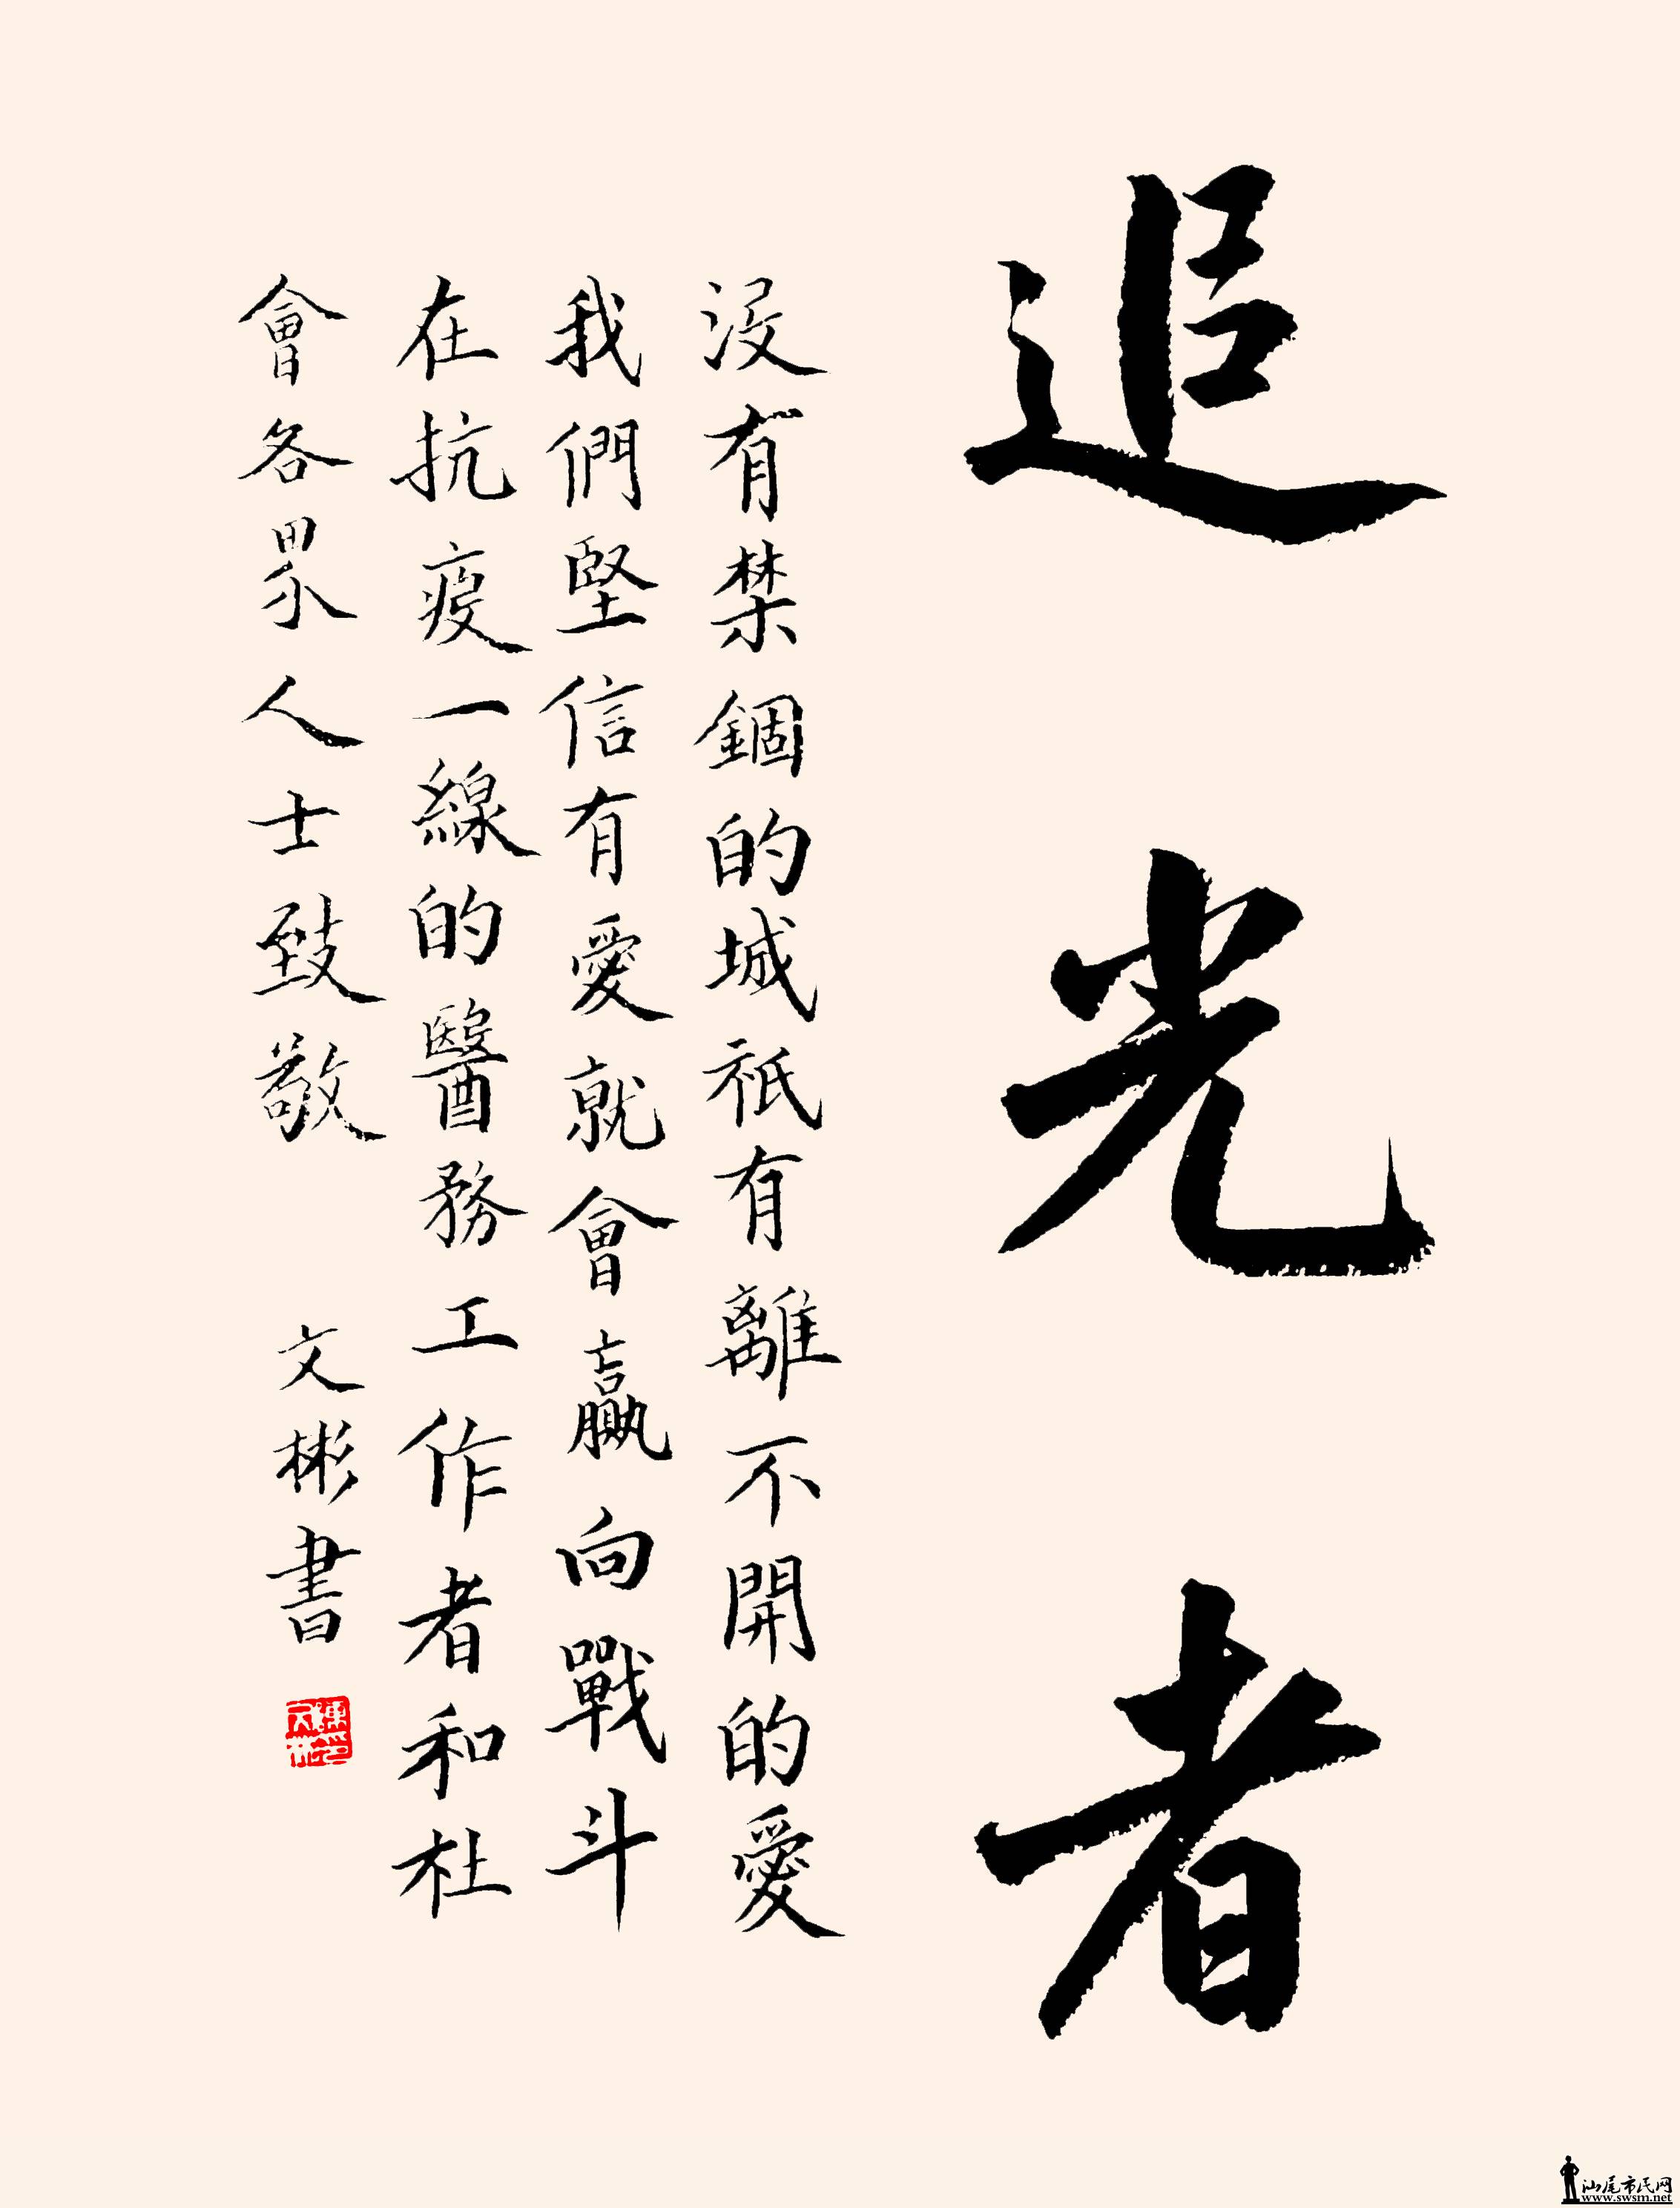 追光者
没有禁錮的城祇有離不開的愛
我們堅信有愛就會贏向戰斗
在抗疫一線的醫務工作者和社
會各界人士致敬
文彬書
汕尾市民网
www.swsm.net